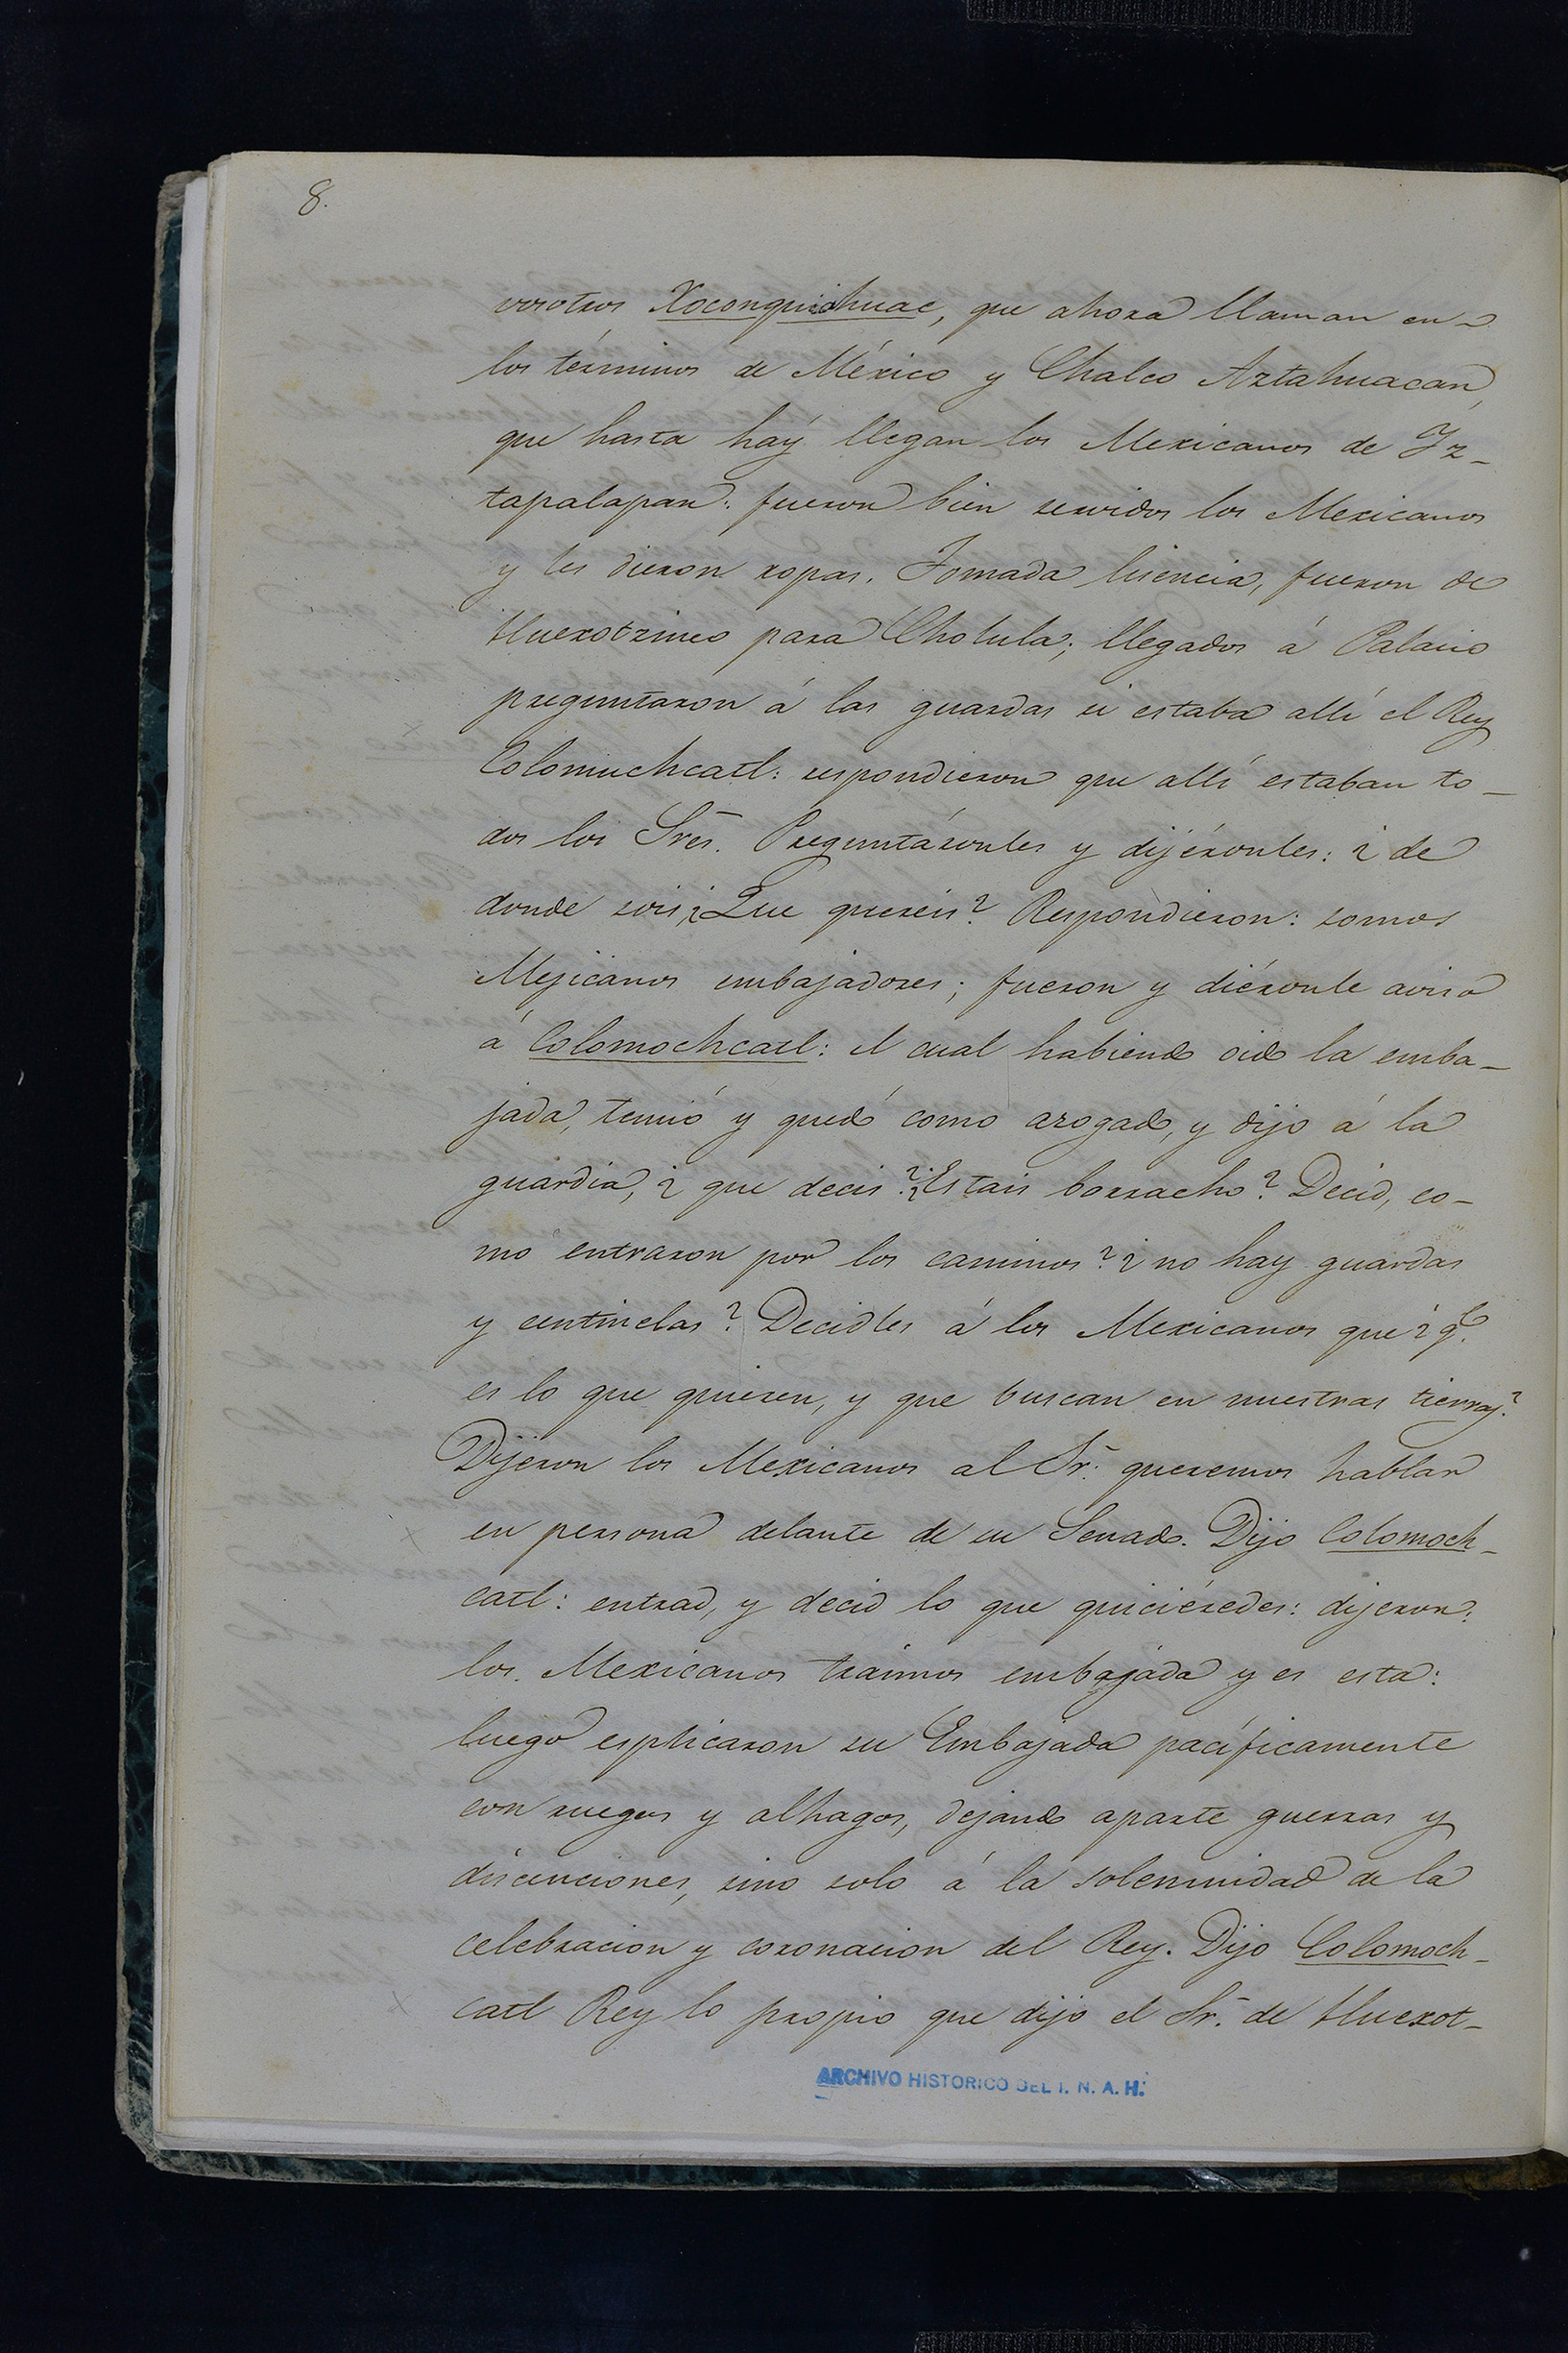 8.
vosotros Xoconquiahuac, que ahora llaman en
los términos de México y Chalco Aztahuacan,
que hasta háy llegan los Mexicanos de Iz-
tapalapan: fueron bien servidos los Mexicanos
y les dieron ropas. Tomada lisencia, fueron de
Huexotzinco para Cholula; llegados á Palacio
preguntaron á las guardas si estaba allí el Rey
Colomuchcatl: respondieron que allí estaban to-
dos los Sres. Preguntáronles y dijéronles: ¿de
donde sois, ¿Que quereis? Respondieron: somos
Mejicanos embajadores; fueron y diéronle aviso
á Colomochcatl: el cual habiendo oido la emba-
jada, temió y quedó como azogado, y dijo á la
guardia, ¿que decis? ¿Estais borracho? Decid, co-
mo entraron por los caminos? ¿no hay guardas
y sentinelas? Decidles á los Mexicanos que ¿qe.
es lo que quieren, y que buscan en nuestras tierras?
Dijeron los Mexicanos al Sr. queremos hablar
en persona delante de su Senado. Dijo Colomoch-
catl: entrad, y decid lo que quiciéredes: dijeron:
los Mexicanos traimos embajada y es esta:
luego esplicaron su Embajada pacíficamente
con ruegos y alhagos, dejando aparte guerras y
discenciones, sino solo á la solemnidad de la
celebracion y coronacion del Rey. Dijo Colomoch-
catl Rey lo propio que dijo el Sr. de Huexot-
ARCHIVO HISTORICO DEL I. N. A. H.